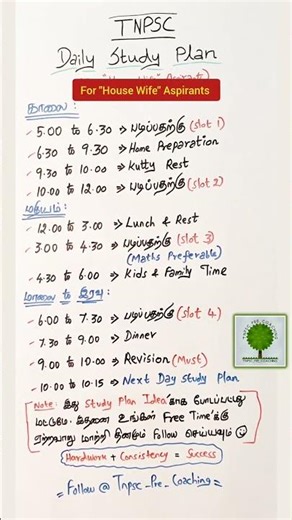 TNPSC
Daily Study Plan
For "House Wife" Aspirants
காலை:
5.00 to 6.30 => படிப்பதற்கு (slot 1)
6.30 to 9.30 => Home Preparation
9.30 to 10.00 => Kutty Rest
10.00 to 12.00 => படிப்பதற்கு (slot 2)
மதியம்:
12.00 to 3.00 => Lunch & Rest
3.00 to 4.30 => படிப்பதற்கு (slot 3)
(Maths Preferable)
4.30 to 6.00 => Kids & Family Time
மாலை to இரவு:
6.00 to 7.30 => படிப்பதற்கு (slot 4)
7.30 to 9.00 => Dinner
9.00 to 10.00 => Revision (Must)
10.00 to 10.15 => Next Day Study Plan
Note: இது Study Plan Idea'காக போடப்பட்டது
மட்டுமே. இதனை உங்கள் Free Time'க்கு
ஏற்றவாறு மாற்றி தினமும் Follow செய்யவும்
Hardwork + Consistency = Success
= Follow @ Tnpsc_Pre_Coaching =